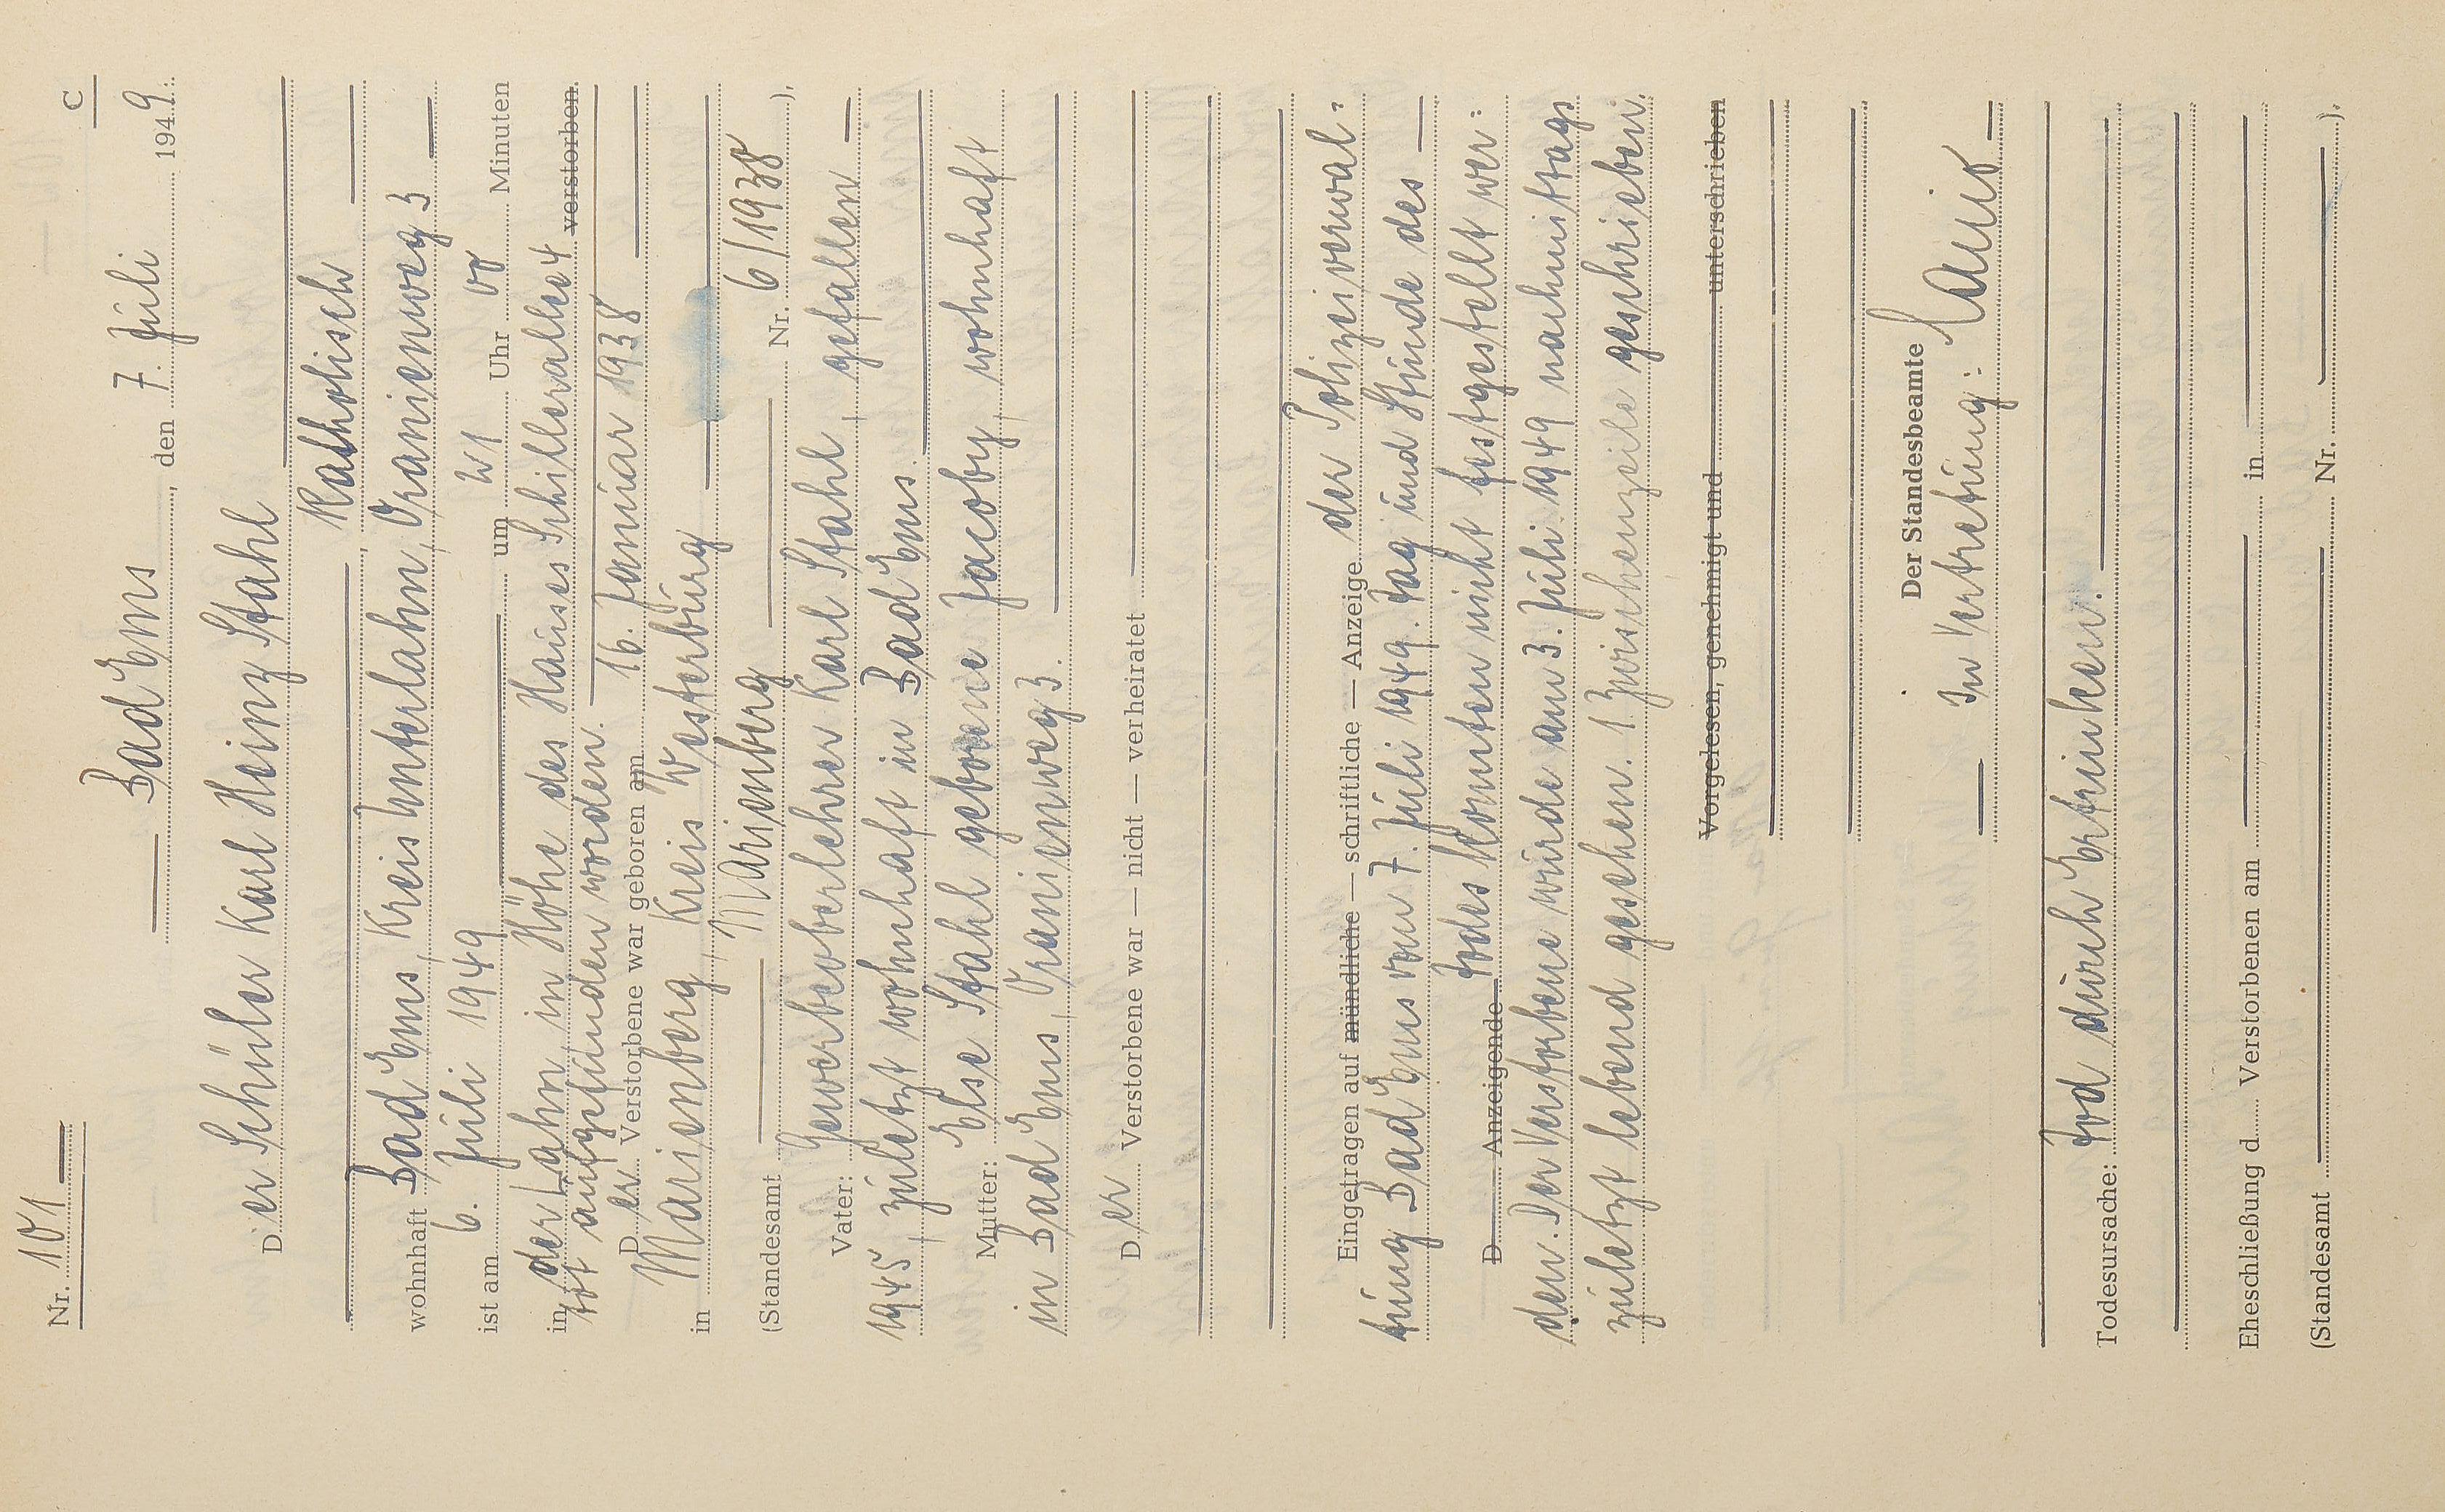 C
Nr. 101
Bad Ems, den 7. Juli 1949
Der Schüler Karl Heinz Stahl
Katholisch
wohnhaft Bad Ems, Kreis Unterlahn, Oranienweg 3
ist am 6. Juli 1949 um 21 Uhr 00 Minuten
in der Lahn, in Höhe des Hauses Schillerallee 4 verstorben.
tot aufgefunden worden.
Der Verstorbene war geboren am 16. Januar 1938
in Marienberg, Kreis Westerburg
(Standesamt Marienberg Nr. 6/1938 ),
Vater: Gewerbeoberlehrer Karl Stahl, gefallen
1945, zuletzt wohnhaft in Bad Ems.
Mutter: Else Stahl geborene Jacoby, wohnhaft
in Bad Ems, Oranienweg 3.
Der Verstorbene war — nicht — verheiratet
Eingetragen auf mündliche — schriftliche — Anzeige der Polizeiverwal=
tung Bad Ems vom 7. Juli 1949. Tag und Stunde des
D Anzeigende Todes konnten nicht festgestellt wer=
den. Der Verstorbene wurde am 3. Juli 1949 nachmittags
zuletzt lebend gesehen. 1 Zwischenzeile geschrieben.
Vorgelesen, genehmigt und unterschrieben
Der Standesbeamte
In Vertretung:
Todesursache: Tod durch Ertrinken.
Eheschließung d Verstorbenen am in
(Standesamt Nr. ),